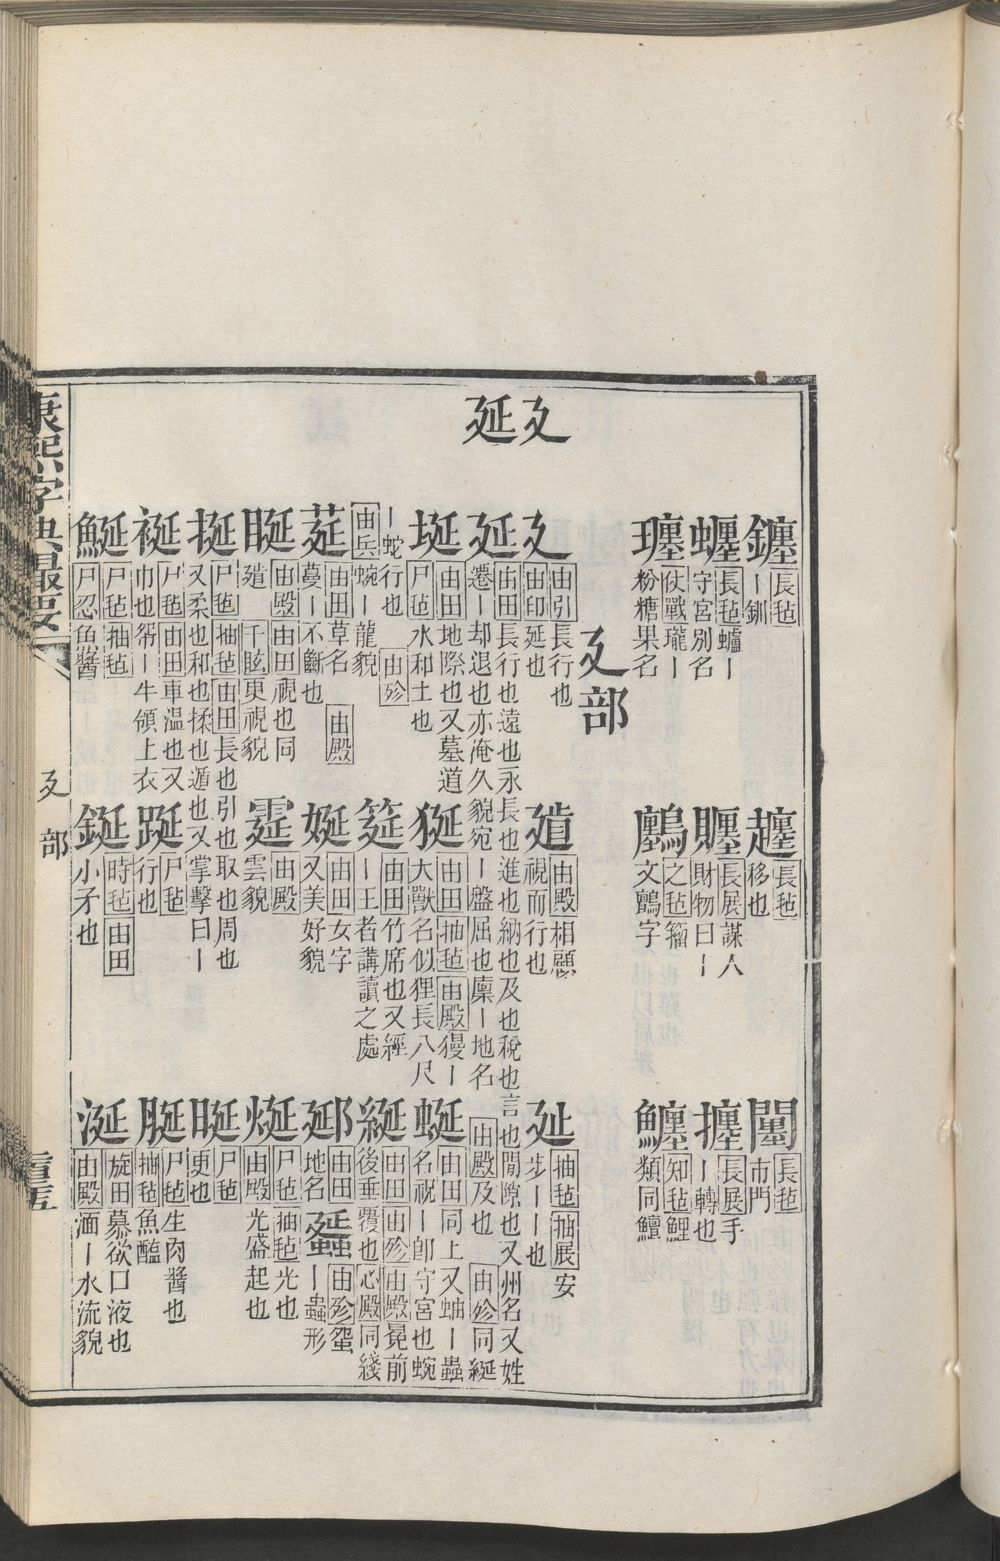 廴延
鑳 長毡 ｜釧
趲 長毡 移也
闤 長毡 市門
蠦 長毡 蠦｜守宮別名
長展 謀人財物曰｜
長展 手｜轉也
仗戰 瓏｜粉糖果名
之毡 籀文鸇字
知毡 鯉類同鱣
廴部
廴 由引 長行也 由印 延也
由殿 相顧視而行也
延 抽毡 抽展 安步｜｜也
延 由田 長行也遠也永長也進也納也及也稅也言也閒隙也又州名又姓
遷｜却退也亦淹久貌宛｜盤屈也廩｜地名 由殿 及也 由殄 同綖
埏 由田 地際也又墓道 尸毡 水和土也
狿 由田 抽毡 由殿 獌｜大獸名似狸長八尺
蜒 由田 同上又蚰｜蟲名祝｜卽守宮也蜿｜蛇行也 由殄
由兵 蜿｜龍貌
筵 由田 竹席也又經｜王者講讀之處
綖 由田 由殄 由殿 冕前後垂覆也 心殿 同綫
莚 由田 草名 由殿 蔓｜不斷也
娫 由田 女字又美好貌
郔 由田 地名
由殄 蛩｜蟲形
由殿 由田 視也同 千眩 更視貌
由殿 雲貌
烻 尸毡 抽毡 光也 由殿 光盛起也
挻 尸毡 抽毡 由田 長也引也取也周也又柔也和也揉也遁也又掌擊曰｜
尸毡 更也
尸毡 由田 車温也又巾也帤｜牛領上衣
尸毡 行也
脠 尸毡 生肉醬也 抽毡 魚醢
尸毡 抽毡 尸忍 魚醬
鋋 時毡 由田 小矛也
涎 旋田 慕欲口液也 由殿 湎｜水流貌
康熙字典最要
廴部